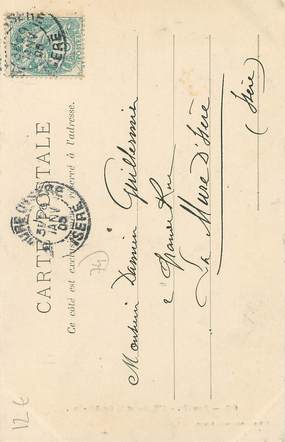 CARTE POSTALE
Ce côté est exclusivement réservé à l'adresse.
Monsieur Damien Guillermin
2 Grande Rue
La Mure D'Isère
(Isère)
ISÈRE
JANV
05
ISERE
12 €